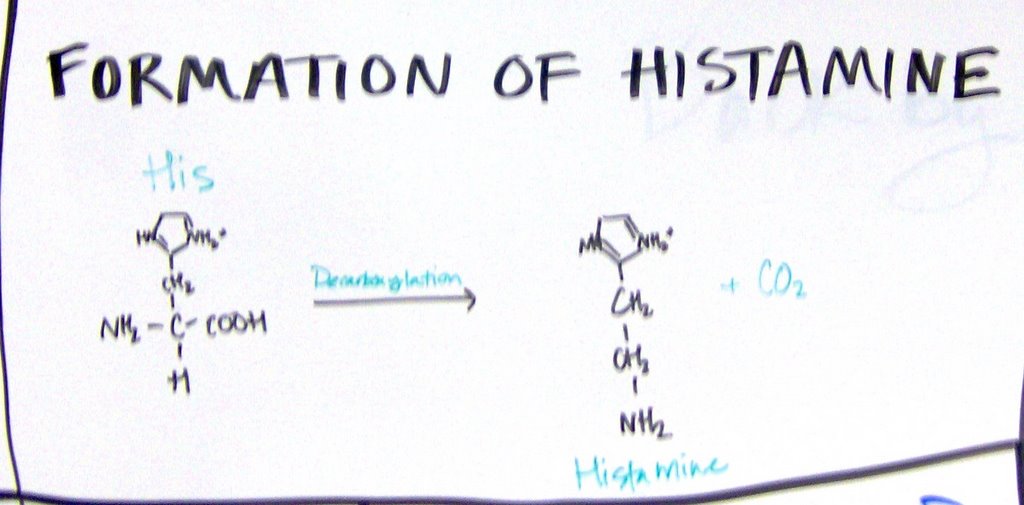 FORMATION OF HISTAMINE
His
HN NH₂⁺
CH₂
NH₂ - C - COOH
H
Decarboxylation
NH₂⁺
CH₂
CH₂
NH₂
+ CO₂
Histamine